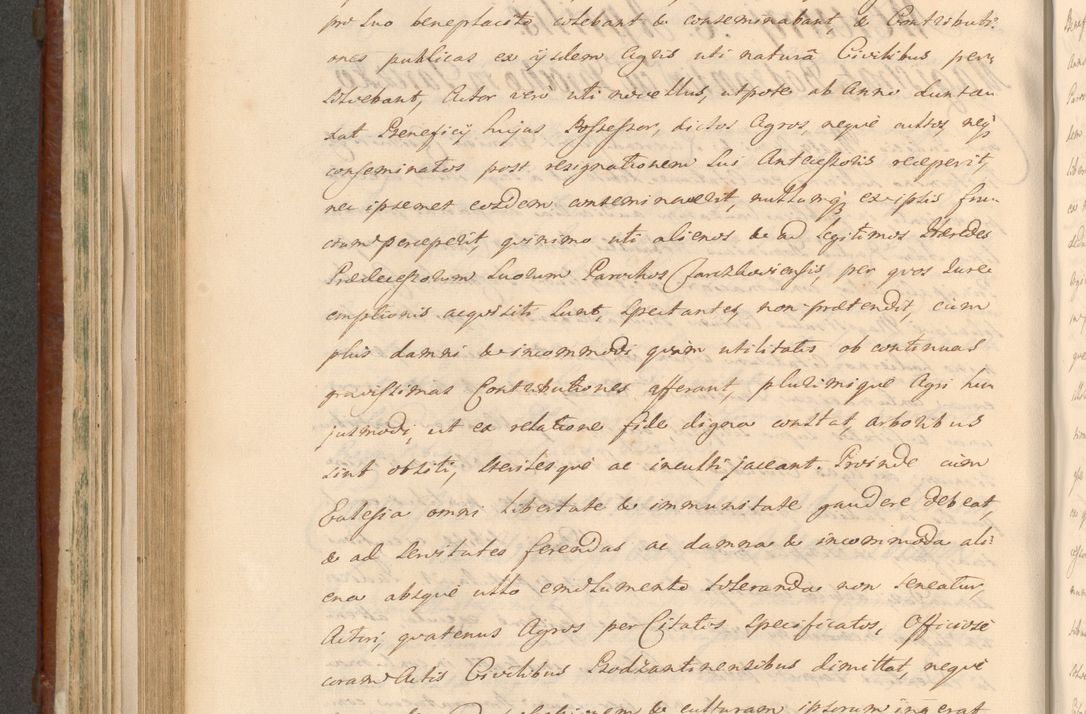 pro suo beneplacito colebant & conseminabant, & Contributi:
ones publicas ex ijsdem Agris uti naturâ Civilibus per:
solvebant, Actor vero uti novellus, utpote ab Anno duntax
xat Beneficij hujus Possessor, dictos Agros, neque cultos neq;
conseminatos post resignationem sui Antecessoris receperit,
nec ipsemet eosdem conseminaverit, nullumq; ex ipsis fru:
ctum perceperit, quinimo uti alienos & ad legitimos Hæredes
Prædecessorum suorum Parochos Jarzkoviensis, per quos Jure
emptionis acquisiti sunt, spectantes, non prætendit, cum
plus damni & incommodi quàm utilitatis ob continuas
gravissimas Contributiones afferant, plurimique Agri hu:
jusmodi, ut ex relatione fide digna constat, arboribus
sint obsiti, sterilesque ac inculti jaceant. Proinde cùm
Ecclesia omni libertate & immunitate gaudere debeat,
& ad servitutes ferendas ac damna & incommoda ali:
ena absque ullo emolumento toleranda non teneatur,
Actori, quatenus Agros per Citatos specificatos, Officiose
coram Actis Civilibus Bodzantinensibus dimittat, neque
& culturam ipsorum ingerat